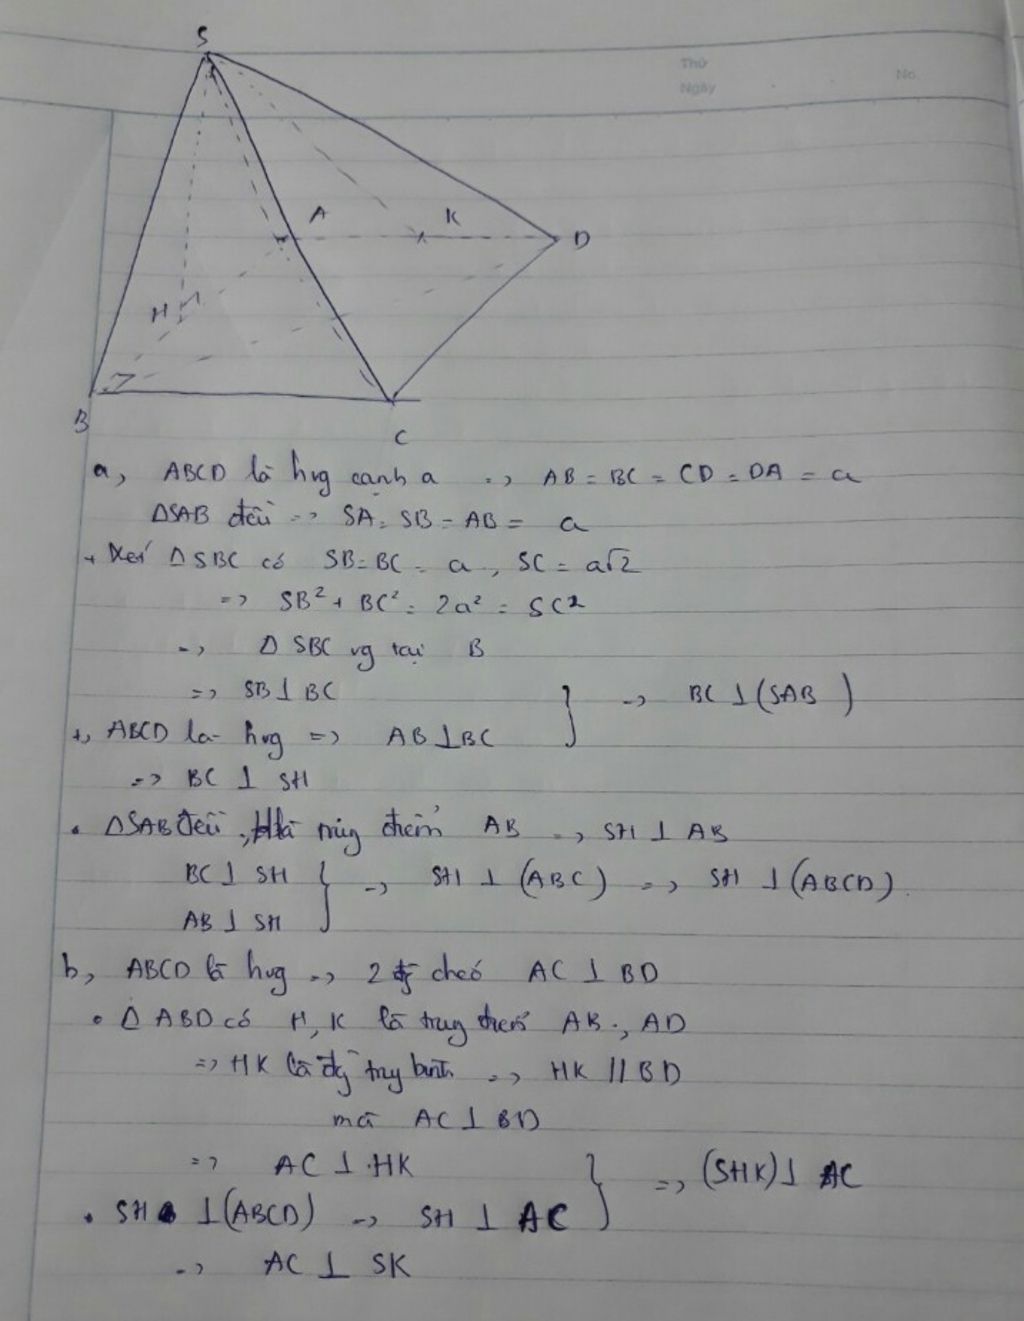 S
Thứ
Ngày
No.
A
K
D
H
B
C
a, ABCD là hvg cạnh a => AB = BC = CD = DA = a
ΔSAB đều => SA = SB = AB = a
+ Xét Δ SBC có SB = BC = a, SC = a√2
=> SB² + BC² = 2a² = SC²
=> Δ SBC vg tại B
=> SB ⊥ BC
=> BC ⊥ (SAB)
+, ABCD là hvg => AB ⊥ BC
=> BC ⊥ SH
• ΔSAB đều, H là trung điểm AB => SH ⊥ AB
BC ⊥ SH } => SH ⊥ (ABC) => SH ⊥ (ABCD).
AB ⊥ SH
b, ABCD là hvg => 2 đg chéo AC ⊥ BD
• Δ ABD có H, K là trung điểm AB, AD
=> HK là đg trung bình => HK // BD
mà AC ⊥ BD
=> AC ⊥ HK } => (SHK) ⊥ AC
• SH ⊥ (ABCD) => SH ⊥ AC
=> AC ⊥ SK